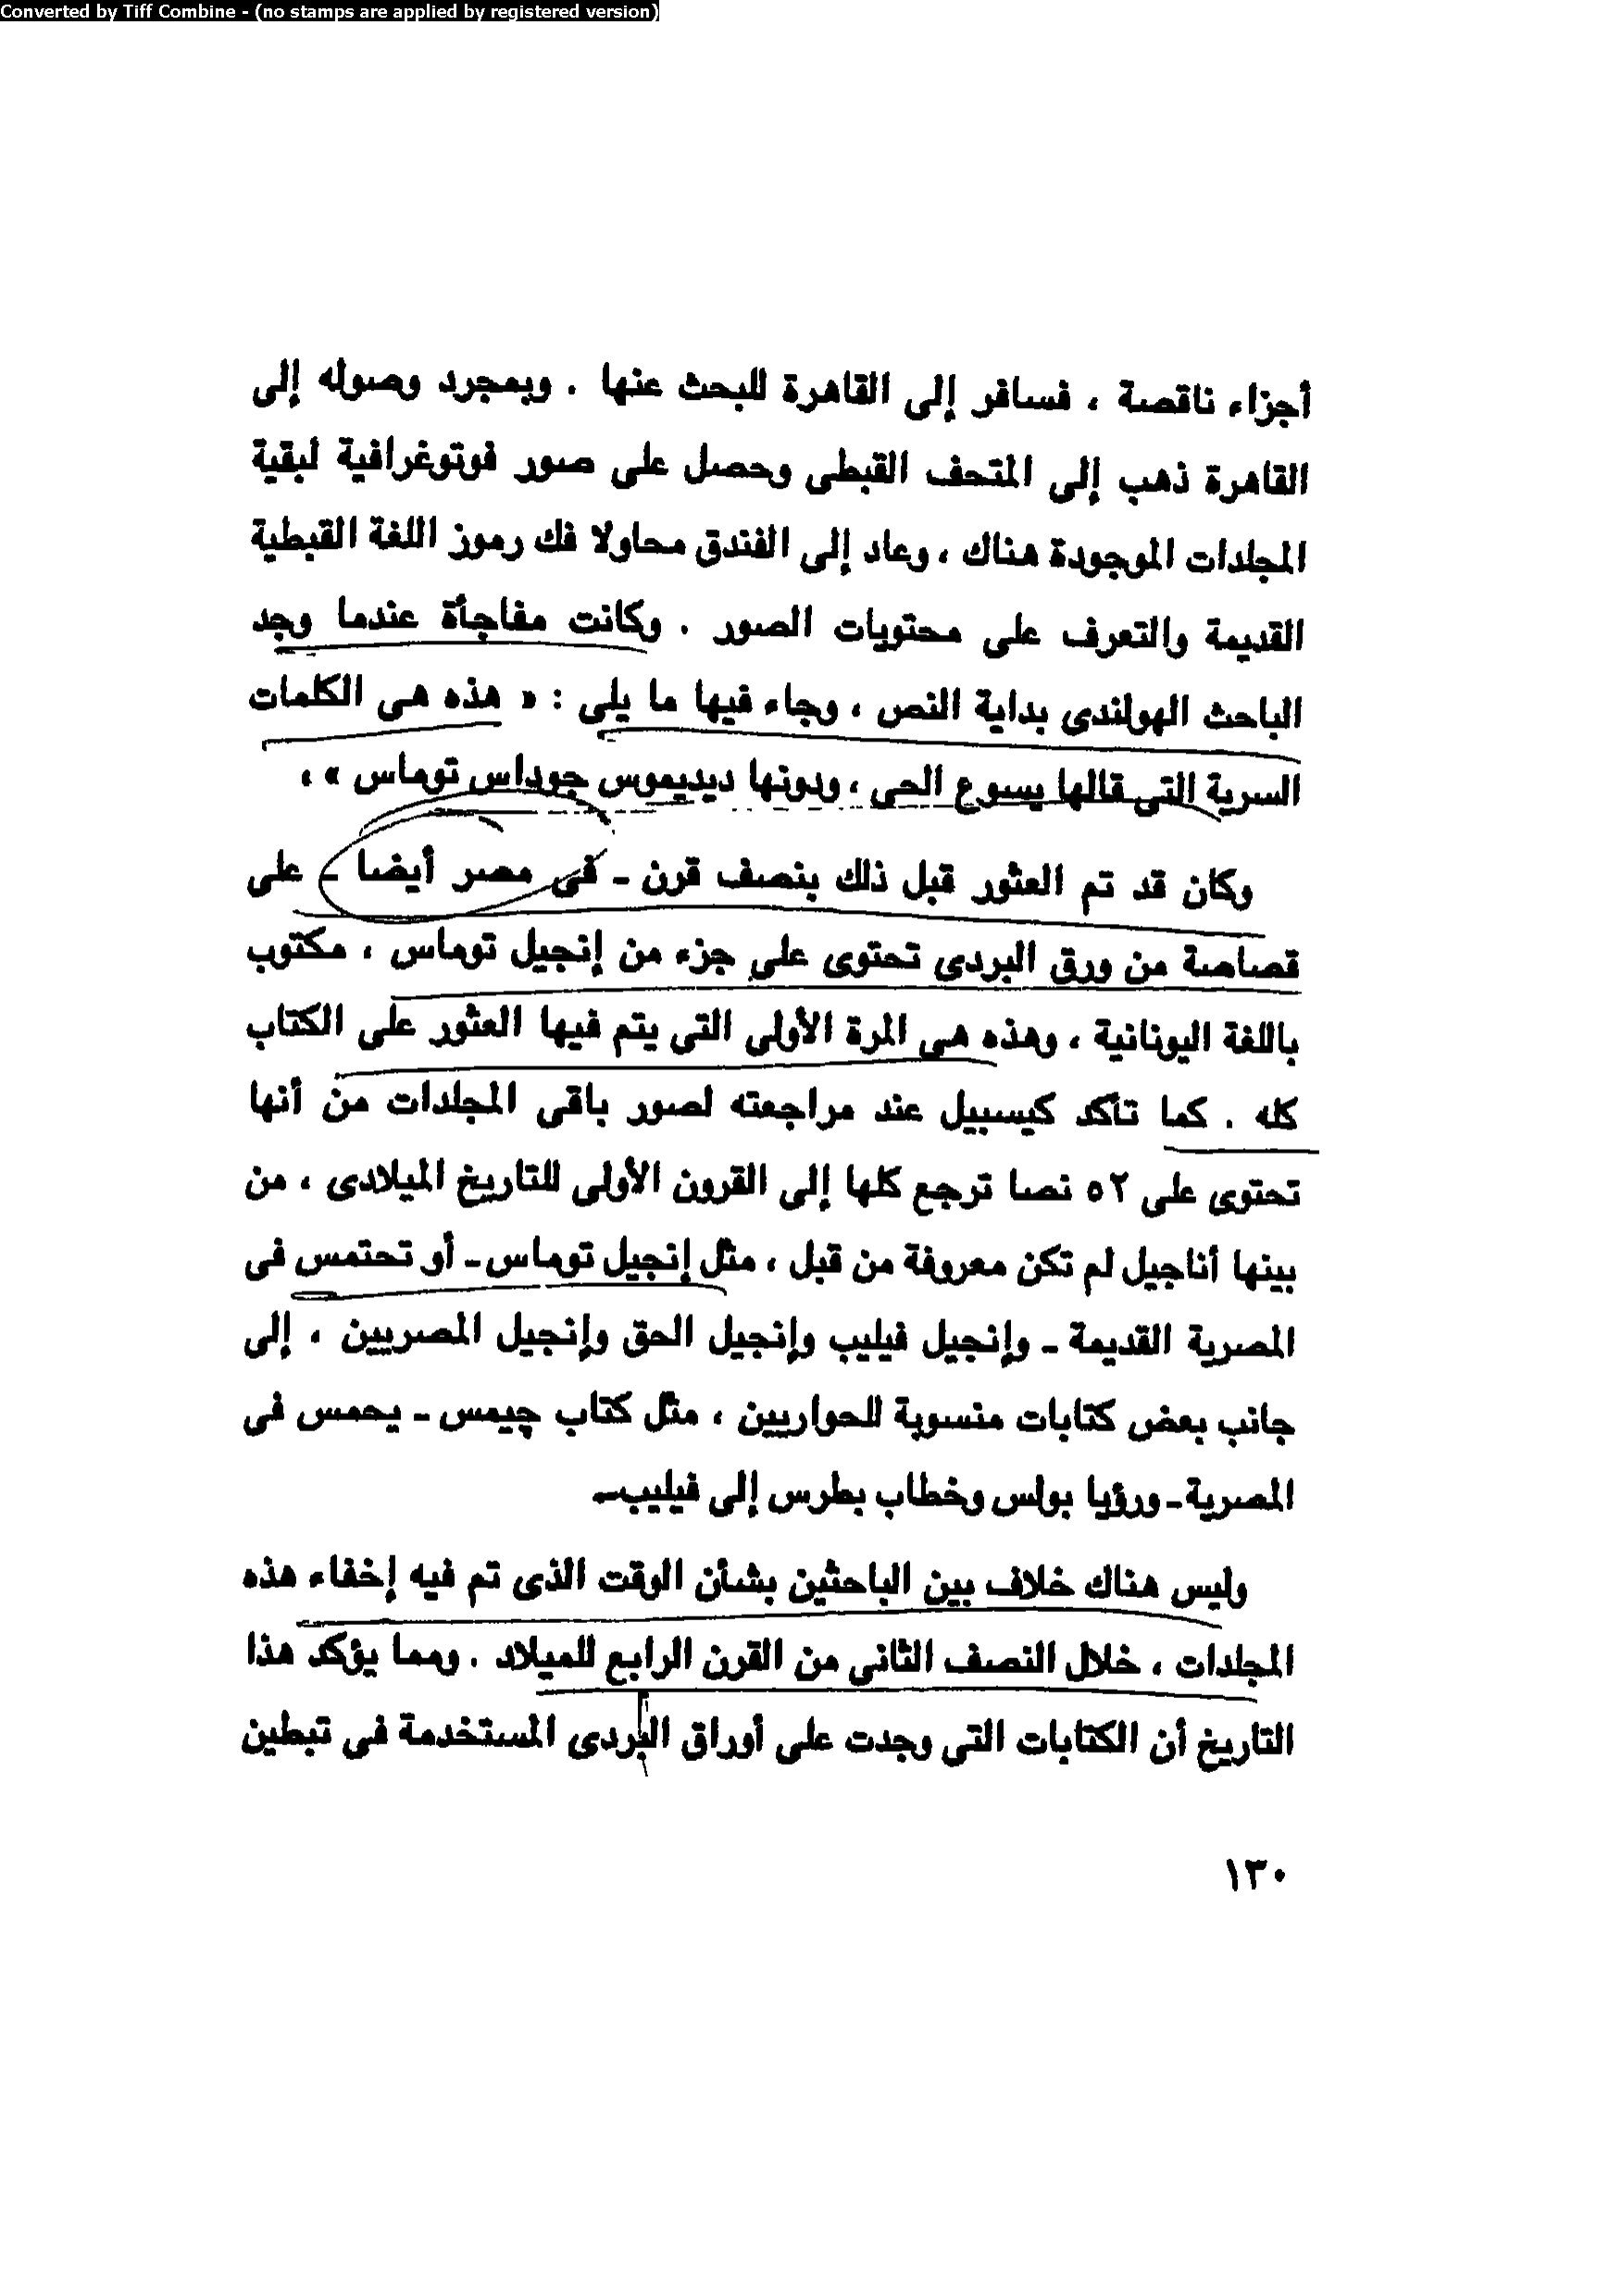 Converted by Tiff Combine - (no stamps are applied by registered version)
أجزاء ناقصة ، فسافر إلى القاهرة للبحث عنها . وبمجرد وصوله إلى
القاهرة ذهب إلى المتحف القبطى وحصل على صور فوتوغرافية لبقية
المجلدات الموجودة هناك ، وعاد إلى الفندق محاولا فك رموز اللغة القبطية
القديمة والتعرف على محتويات الصور . وكانت مفاجأة عندما وجد
الباحث الهولندى بداية النص ، وجاء فيها ما يلى : « هذه هى الكلمات
السرية التى قالها يسوع الحى ، ودونها ديديموس جوداس توماس » ،
وكان قد تم العثور قبل ذلك بنصف قرن - فى مصر أيضا - على
قصاصة من ورق البردى تحتوى على جزء من إنجيل توماس ، مكتوب
باللغة اليونانية ، وهذه هى المرة الأولى التى يتم فيها العثور على الكتاب
كله . كما تأكد كيسبيل عند مراجعته لصور باقى المجلدات من أنها
تحتوى على ٥٢ نصا ترجع كلها إلى القرون الأولى للتاريخ الميلادى ، من
بينها أناجيل لم تكن معروفة من قبل ، مثل إنجيل توماس - أو تحتمس فى
المصرية القديمة - وإنجيل فيليب وإنجيل الحق وإنجيل المصريين ، إلى
جانب بعض كتابات منسوبة للحواريين ، مثل كتاب چيمس - يحمس فى
المصرية - ورؤيا بولس وخطاب بطرس إلى فيليب.
وليس هناك خلاف بين الباحثين بشأن الوقت الذى تم فيه إخفاء هذه
المجلدات ، خلال النصف الثانى من القرن الرابع للميلاد . ومما يؤكد هذا
التاريخ أن الكتابات التى وجدت على أوراق البردى المستخدمة فى تبطين
١٣٠